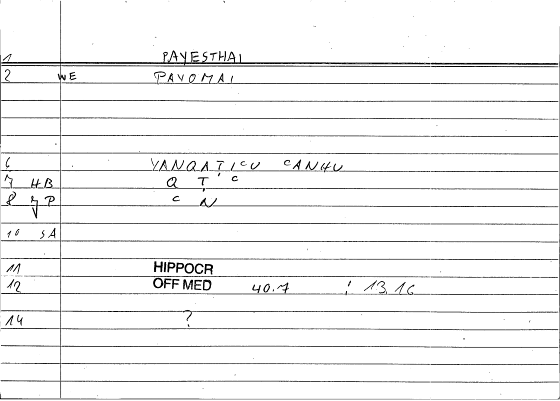 1 PAYESTHAI
2 WE PAVOMAI
6 VANQATICU CANHU
7 HB Q T C
8 7P C N
10 SA
11 HIPPOCR
12 OFF MED 40.7 : 13,16
14 ?